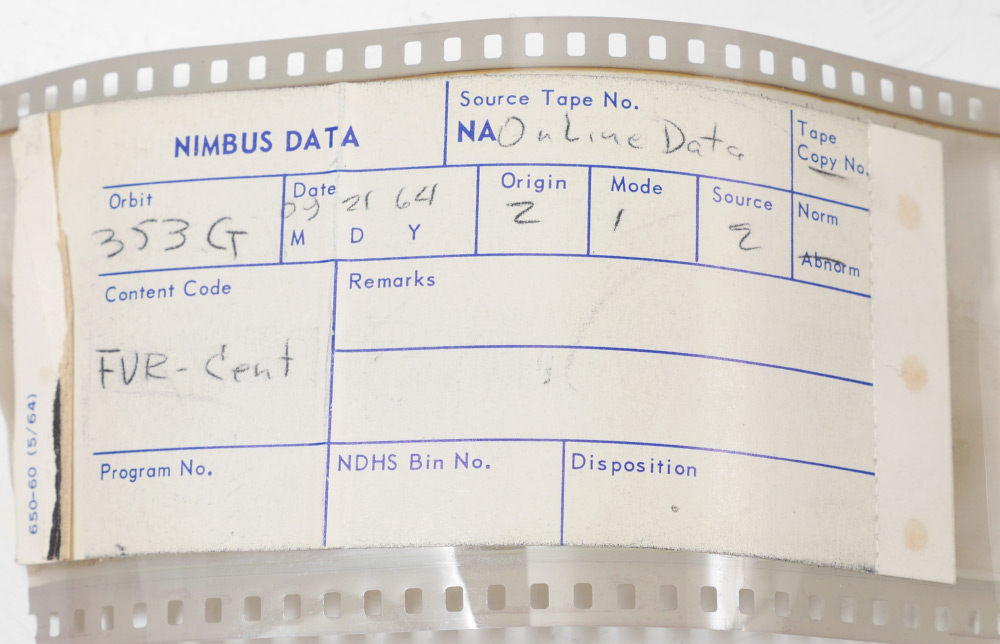 NIMBUS DATA
Source Tape No.
NA On Line Data
Tape Copy No.
Orbit
353 G
Date
09 21 64
M D Y
Origin
2
Mode
1
Source
2
Norm
Abnorm
Content Code
FVR-Cent
Remarks
Program No.
NDHS Bin No.
Disposition
650-60 (5/64)